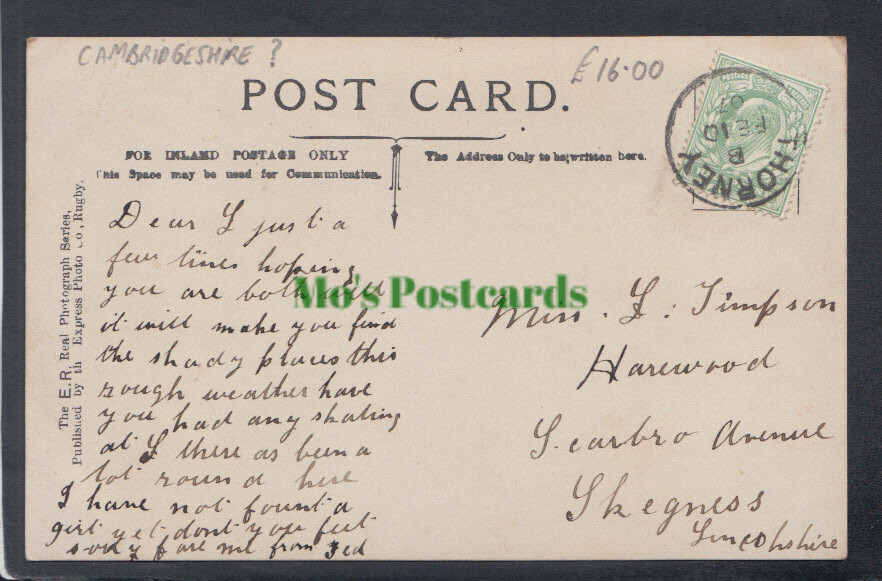 CAMBRIDGESHIRE ?
£16.00
POST CARD.
FOR INLAND POSTAGE ONLY
This Space may be used for Communication.
The Address Only to be written here.
THORNEY
B
FE 10
07
The E.R. Real Photograph Series,
Published by th Express Photo Co, Rugby.
Dear L just a
few lines hoping
you are both well
it will make you find
the shady places this
rough weather have
you had any skating
at S there as been a
lot round here
I have not found a
girl yet dont you feel
sorry for me from Ted
Miss. L. Simpson
Harewood
Scarbro Avenue
Skegness
Lincolnshire
Mo's Postcards